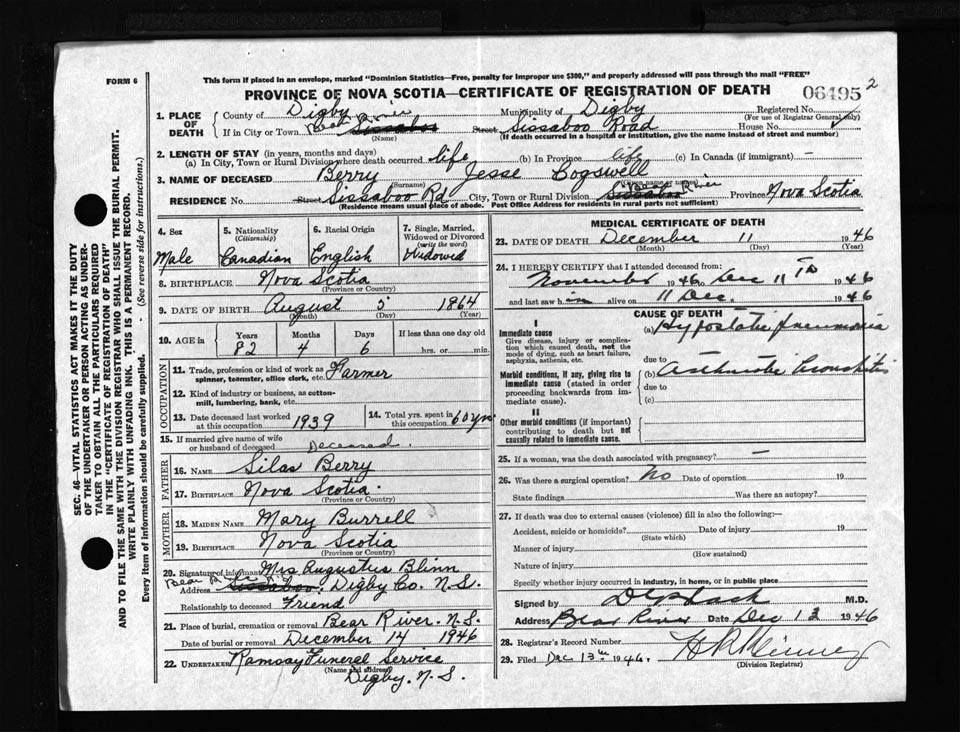 FORM 6
This form if placed in an envelope, marked "Dominion Statistics—Free, penalty for improper use $300," and properly addressed will pass through the mail "FREE"
PROVINCE OF NOVA SCOTIA—CERTIFICATE OF REGISTRATION OF DEATH
06495 2
SEC. 46—VITAL STATISTICS ACT MAKES IT THE DUTY
OF THE UNDERTAKER OR PERSON ACTING AS UNDER-
TAKER TO OBTAIN ALL THE PARTICULARS REQUIRED
IN THE "CERTIFICATE OF REGISTRATION OF DEATH"
AND TO FILE THE SAME WITH THE DIVISION REGISTRAR WHO SHALL ISSUE THE BURIAL PERMIT.
WRITE PLAINLY WITH UNFADING INK. THIS IS A PERMANENT RECORD.
Every item of information should be carefully supplied. - (See reverse side for instructions.)
1. PLACE OF DEATH
County of Digby Municipality of Digby Registered No.
(For use of Registrar General only)
If in City or Town Bear River Sissaboo Street Sissaboo Road House No.
(Name) (If death occurred in a hospital or institution, give the name instead of street and number)
2. LENGTH OF STAY (in years, months and days)
(a) In City, Town or Rural Division where death occurred life (b) In Province life (c) In Canada (if immigrant) —
3. NAME OF DECEASED Berry Jesse Cogswell
(Surname) (Given name or names)
RESIDENCE No. Street Sissaboo Rd City, Town or Rural Division Sissaboo Bear River Province Nova Scotia
(Residence means usual place of abode. Post Office Address for residents in rural parts not sufficient)
4. Sex
Male
5. Nationality
(Citizenship)
Canadian
6. Racial Origin
English
7. Single, Married,
Widowed or Divorced
(write the word)
Widowed
8. BIRTHPLACE Nova Scotia
(Province or Country)
9. DATE OF BIRTH August 5 1864
(Month) (Day) (Year)
10. AGE in
Years Months Days If less than one day old
82 4 6 hrs. or min.
OCCUPATION
11. Trade, profession or kind of work as
spinner, teamster, office clerk, etc. Farmer
12. Kind of industry or business, as cotton-
mill, lumbering, bank, etc.
13. Date deceased last worked
at this occupation 1939
14. Total yrs. spent in
this occupation 60 yrs.
15. If married give name of wife
or husband of deceased Deceased.
FATHER
16. NAME Silas Berry
17. BIRTHPLACE Nova Scotia.
(Province or Country)
MOTHER
18. MAIDEN NAME Mary Burrell
19. BIRTHPLACE Nova Scotia
(Province or Country)
20. Signature of informant Mrs Augustus Blinn
Bear River
Address Sissaboo, Digby Co. N.S.
Relationship to deceased Friend
21. Place of burial, cremation or removal Bear River. N.S.
Date of burial or removal December 14 1946
22. UNDERTAKER Ramsay Funeral Service
(Name and address)
Digby. N.S.
MEDICAL CERTIFICATE OF DEATH
23. DATE OF DEATH December 11 1946
(Month) (Day) (Year)
24. I HEREBY CERTIFY that I attended deceased from:
November 1946 to Dec 11 TH 1946
and last saw him alive on 11 Dec. 1946
CAUSE OF DEATH
I
Immediate cause
Give disease, injury or complica-
tion which caused death, not the
mode of dying, such as heart failure,
asphyxia, asthenia, etc.
(a) Hypostatic pneumonia
due to
Morbid conditions, if any, giving rise to
immediate cause (stated in order
proceeding backwards from im-
mediate cause).
(b) Asthmatic bronchitis
due to
(c)
II
Other morbid conditions (if important)
contributing to death but not
causally related to immediate cause.
25. If a woman, was the death associated with pregnancy? —
26. Was there a surgical operation? No Date of operation 19
State findings Was there an autopsy?
27. If death was due to external causes (violence) fill in also the following:—
Accident, suicide or homicide? Date of injury 19
(State which)
Manner of injury
(How sustained)
Nature of injury
Specify whether injury occurred in industry, in home, or in public place
Signed by M.D.
Address Bear River Date Dec 13 1946
28. Registrar's Record Number
29. Filed Dec. 13th 1946.
(Division Registrar)